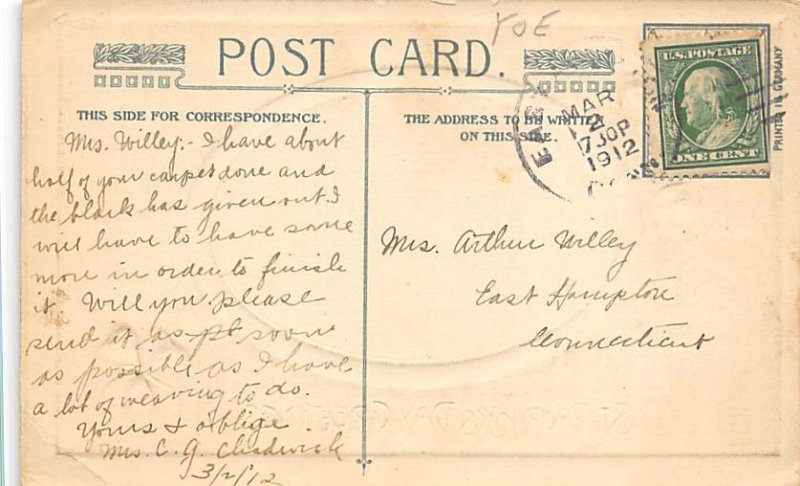 YOE
POST CARD.
THIS SIDE FOR CORRESPONDENCE.
Mrs. Willey:- I have about
half of your carpet done and
the black has given out. I
will have to have some
more in order to finish
it. Will you please
send it as soon
as possible as I have
a lot of weaving to do.
Yours & oblige
Mrs. C. G. Chadwick
3/2/12
THE ADDRESS TO BE WRITTEN
ON THIS SIDE.
EAS
MAR
2
730P
1912
CONN
U.S. POSTAGE
ONE CENT
PRINTED IN GERMANY
Mrs. Arthur Willey
East Hampton
Connecticut
ST. PATRICK'S DAY GREETINGS